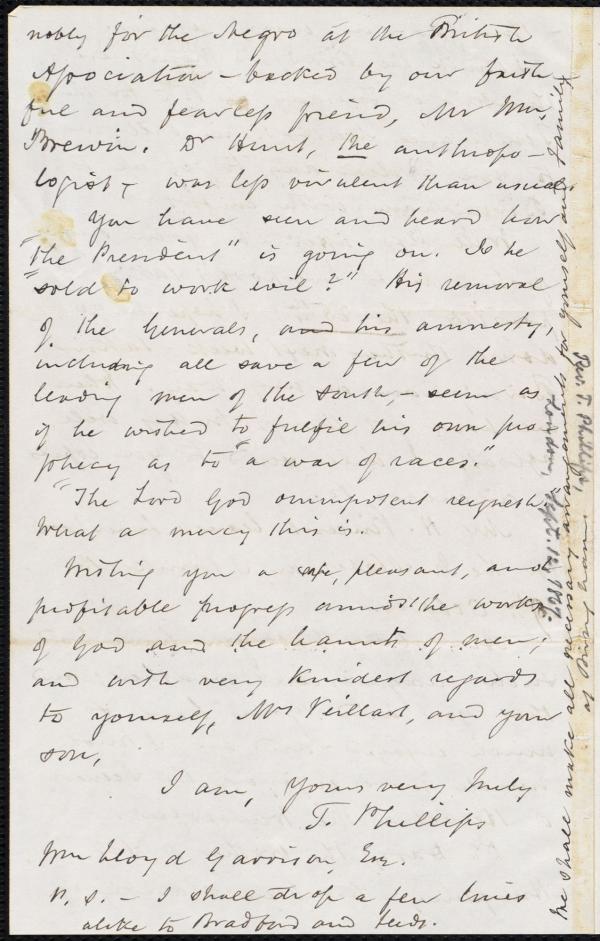 nobly for the Negro at the British
Association – backed by our faith
ful and fearless friend, Mr Wm.
Brewin. Dr Hunt, the anthropo-
logist, was less virulent than usual.
You have seen and heard how
"the President" is going on. Is he
"sold to work evil?" His removal
of the Generals, and his amnesty,
including all save a few of the
leading men of the South, – seem as
if he wished to fulfil his own pro
phecy as to "a war of races."
"The Lord God omnipotent reigneth"
What a mercy this is.
Wishing you a safe, pleasant, and
profitable progress amidst the works
of God and the haunts of men;
and with very kindest regards
to yourself, Mrs Veillart, and your
son,
I am, yours very truly
T. Phillips
Wm Lloyd Garrison, Esq.
P. S. – I shall drop a few lines
alike to Bradford and Leeds.
We shall make all necessary arrangements for yourself and Family
at Birmingham.
Rev. T. Phillips,
London, Sept. 12, 1867.